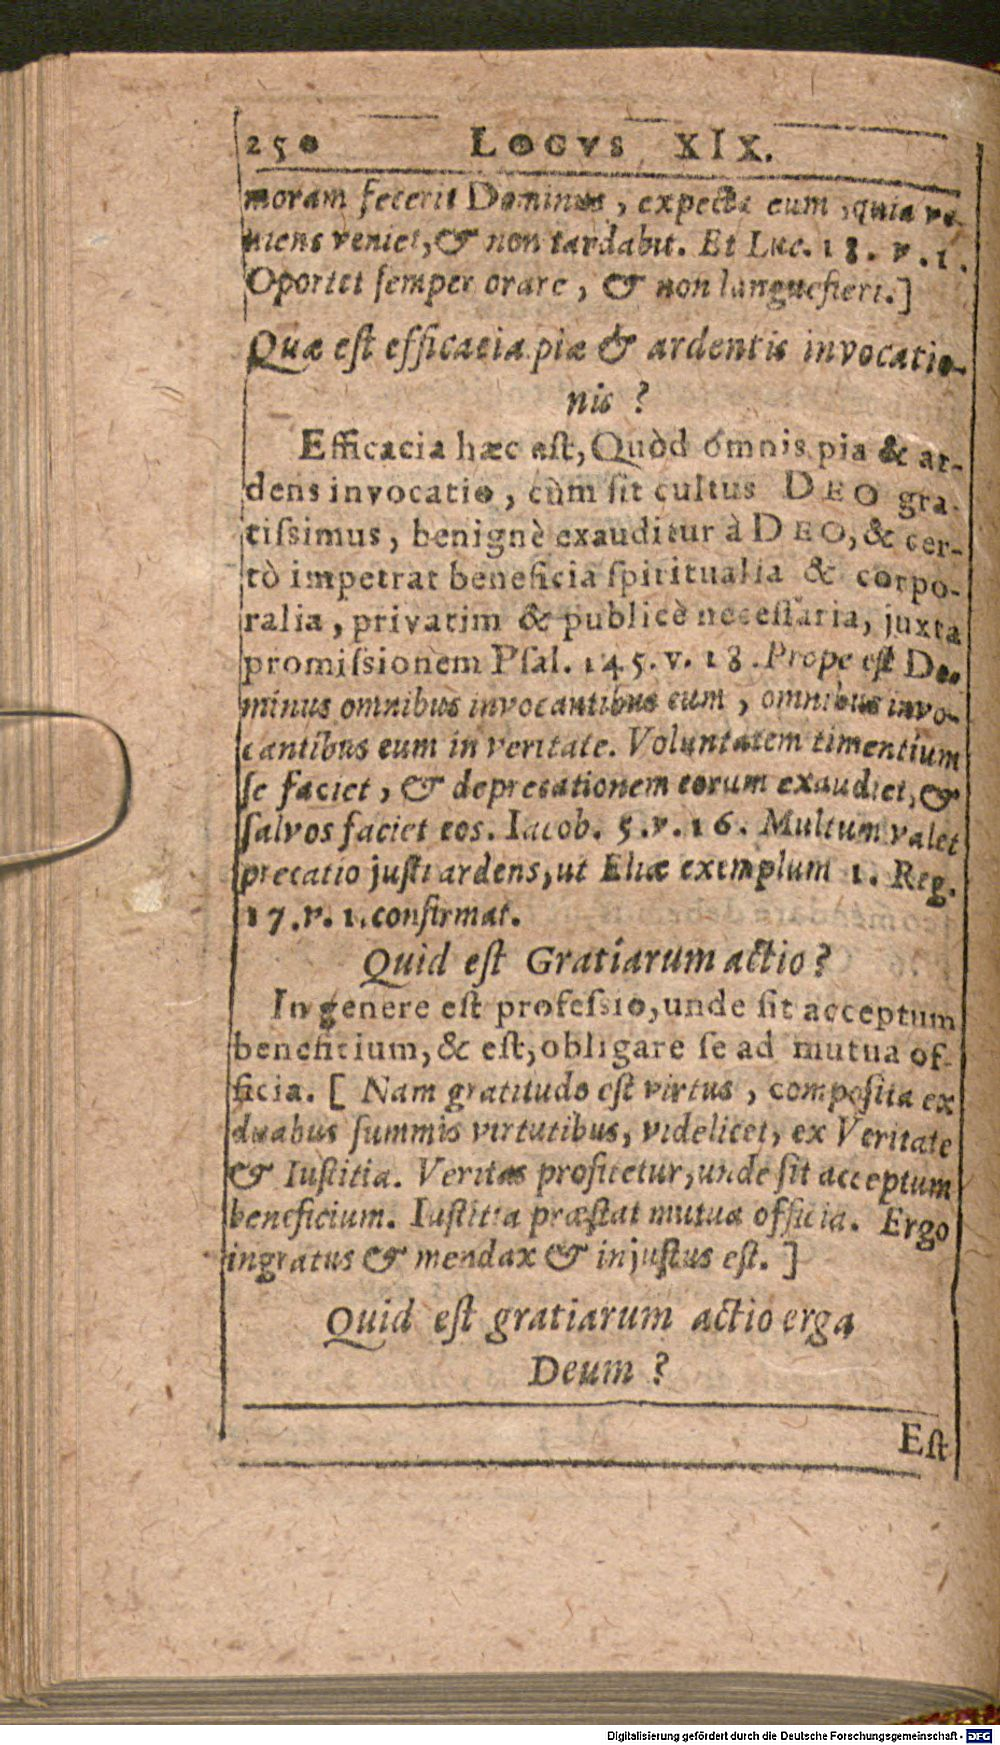 250 LOCVS XIX.
moram fecerit Dominus, expecta eum, quia ve-
niens veniet, & non tardabit. Et Luc. 18. v. 1.
Oportet semper orare, & non languefieri.]
Quæ est efficacia piæ & ardentis invocatio-
nis?
Efficacia hæc est, Quòd omnis pia & ar-
dens invocatio, cùm sit cultus DEO gra-
tissimus, benignè exauditur à DEO, & cer-
tò impetrat beneficia spiritualia & corpo-
ralia, privatim & publicè necessaria, juxta
promissionem Psal. 145. v. 18. Prope est Do-
minus omnibus invocantibus eum, omnibus invo-
cantibus eum in veritate. Voluntatem timentium
se faciet, & deprecationem eorum exaudiet, &
salvos faciet eos. Iacob. 5. v. 16. Multum valet
precatio justi ardens, ut Eliæ exemplum 1. Reg.
17. v. 1. confirmat.
Quid est Gratiarum actio?
In genere est professio, unde sit acceptum
beneficium, & est, obligare se ad mutua of-
ficia. [Nam gratitudo est virtus, composita ex
duabus summis virtutibus, videlicet, ex Veritate
& Iustitia. Veritas profitetur, unde sit acceptum
beneficium. Iustitia præstat mutua officia. Ergo
ingratus & mendax & injustus est.]
Quid est gratiarum actio erga
Deum?
Est
Digitalisierung gefördert durch die Deutsche Forschungsgemeinschaft - DFG